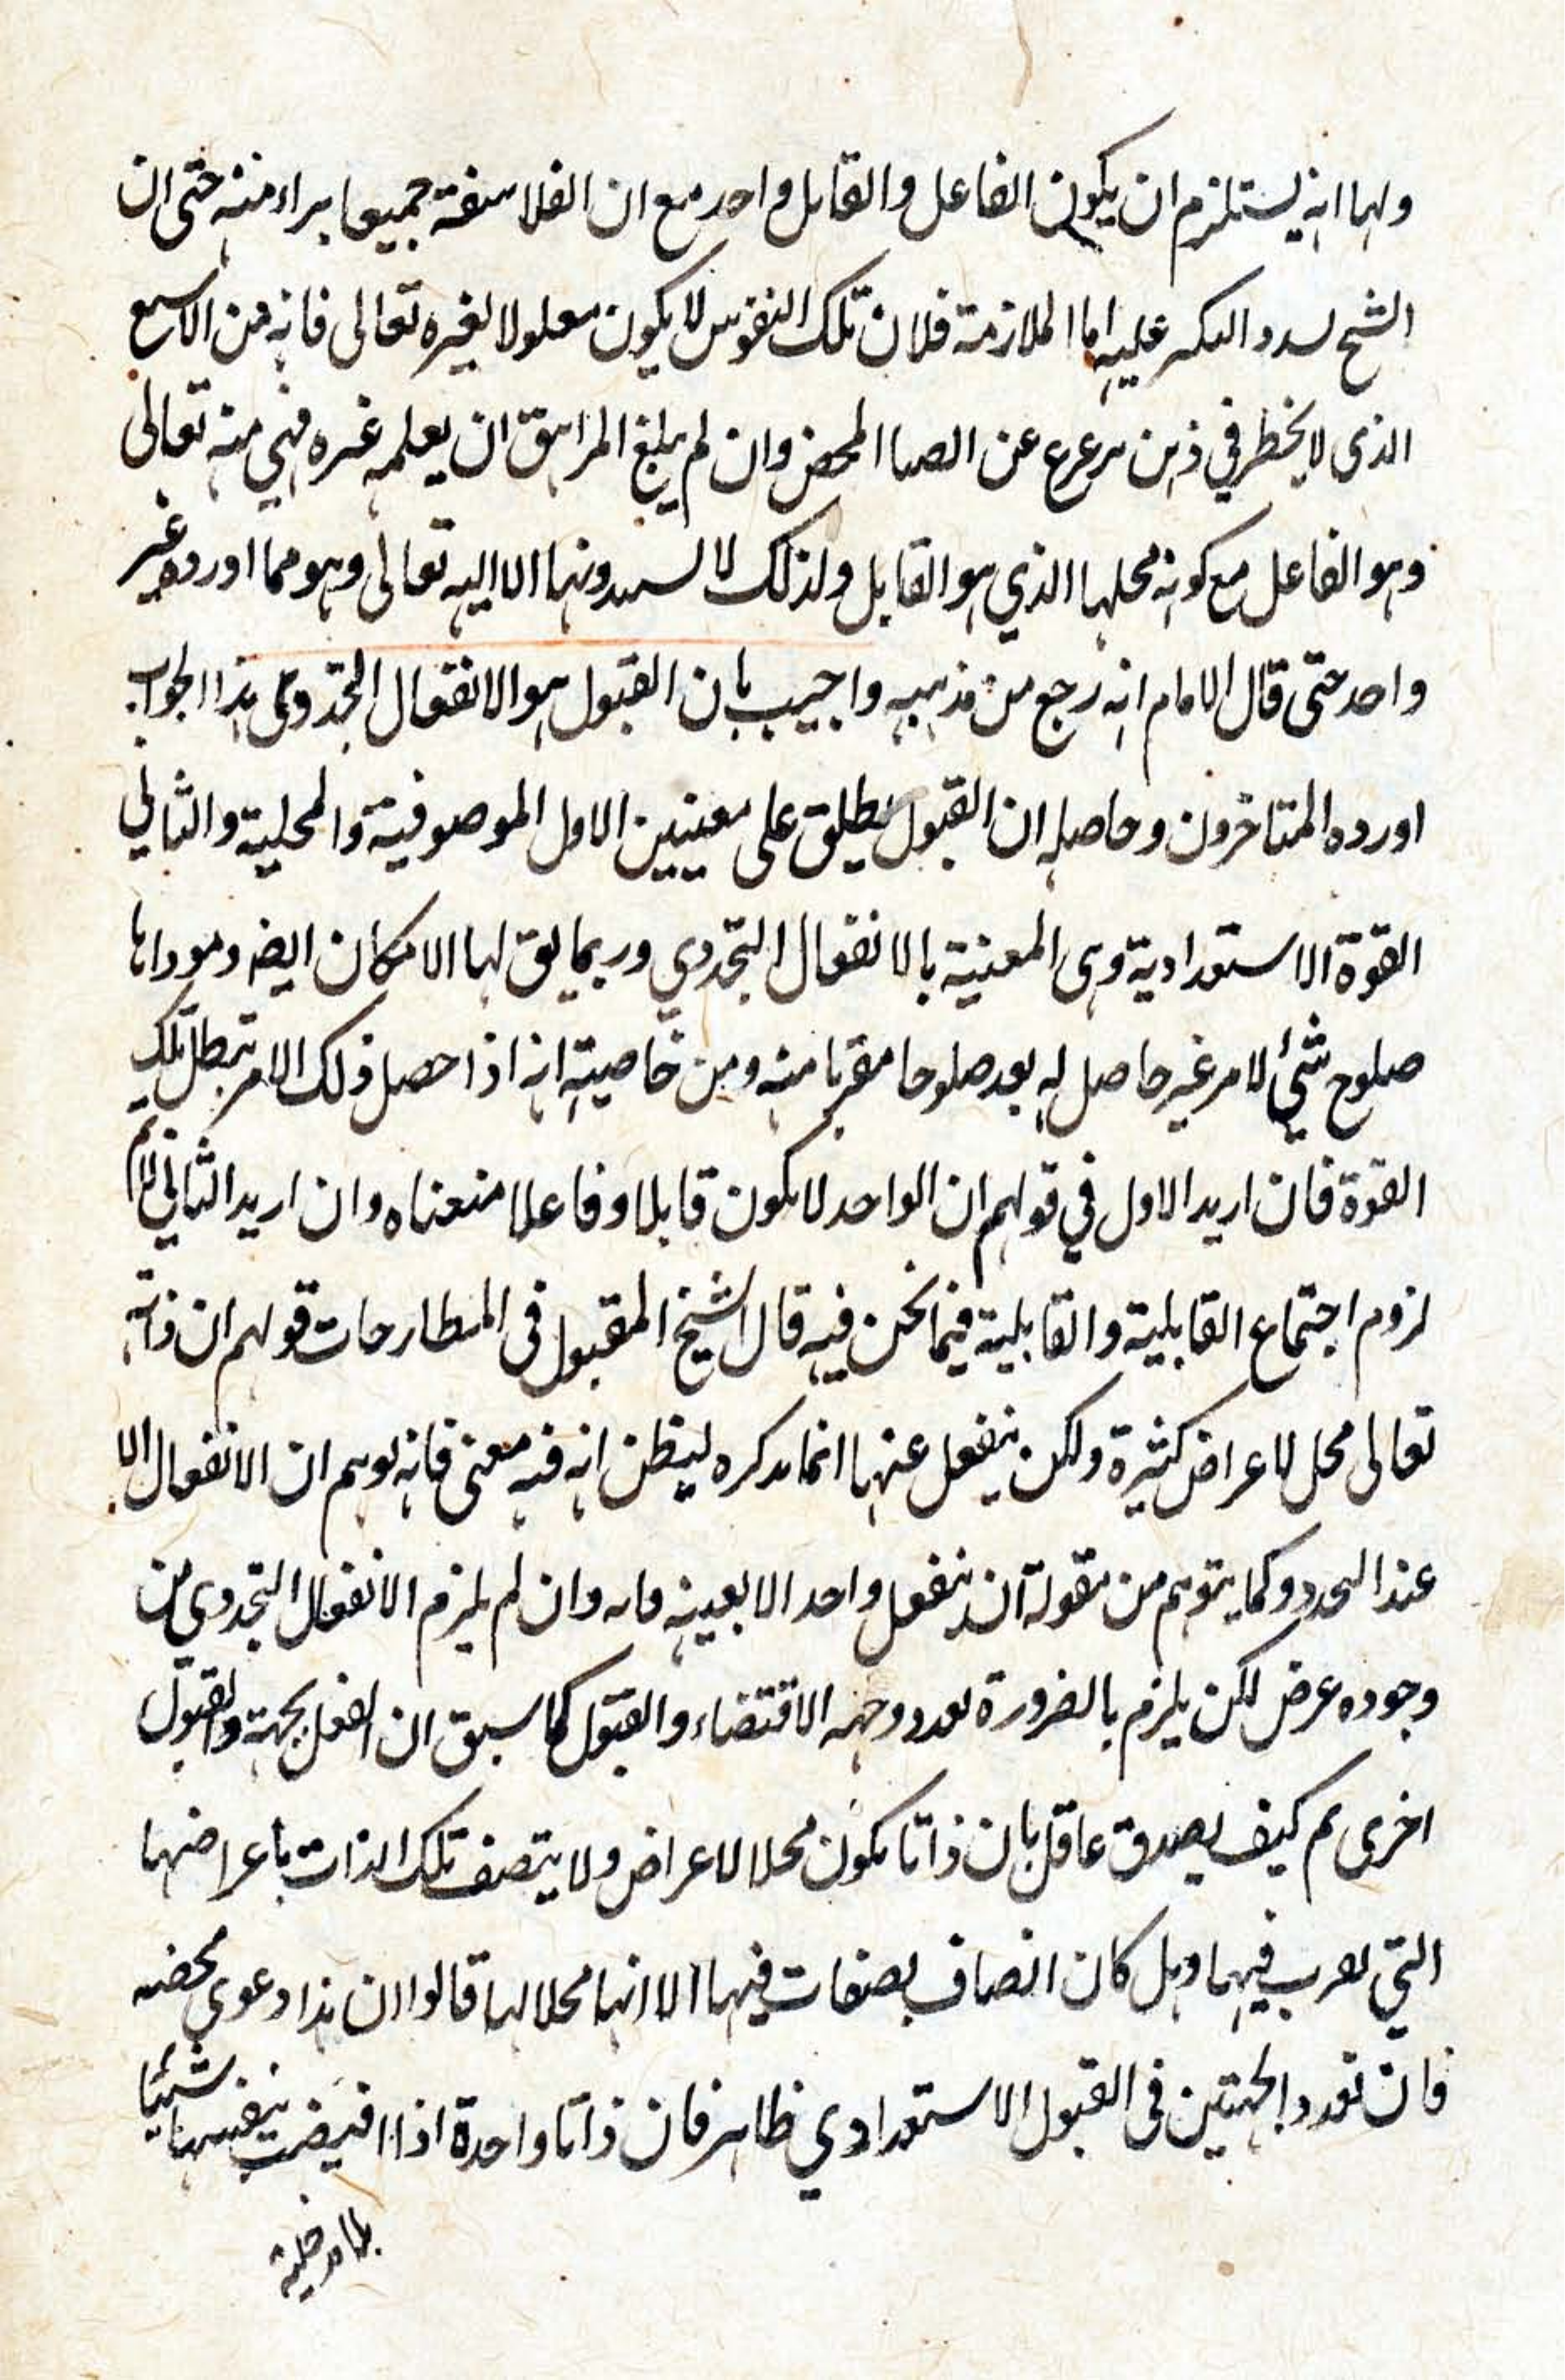 ولهما انه يستلزم ان يكون الفاعل والقابل واحد مع ان الفلاسفة جميعا براء منه حتى ان
الشيخ لسدد النكير عليه اما الملازمة فلان تلك النقوس لا يكون معلولا لغيره تعالى فانه من الاسع
الذى لا يخطر في ذهن مرعرع عن الصبا المحض وان لم يبلغ المراهق ان يعلمه غيره فهي منه تعالى
وهو الفاعل مع كونه محلها الذي هو القابل ولذلك لا يسندونها الا اليه تعالى وهو مما اورده غير
واحد حتى قال الامام انه رجع من مذهبه واجيب بان القبول هو الانفعال التجددى هذا الجواب
اورده المتاخرون وحاصله ان القبول يطلق على معنيين الاول الموصوفية والمحلية والثاني
القوة الاستعدادية وهى المعنية بالانفعال التجددي وربما يق لها الامكان ايضا ومودانا
صلوح شيئ لامر غير حاصل له بعد صلوحا مقربا منه ومن خاصيته انه اذا حصل ذلك الامر تبطل تلك
القوة فان اريد الاول في قولهم ان الواحد لا يكون قابلا وفاعلا منعناه وان اريد الثاني لانم
لزوم اجتماع القابلية والقابلية فيما نحن فيه قال الشيخ المقبول فى المطارحات قولهم ان ذاته
تعالى محل لاعراض كثيرة ولكن ينفعل عنها انما يذكره ليظن انه فيه معنى فانه يوهم ان الانفعال الا
عند التجدد وكما يتوهم من مقولة ان ينفعل واحد الا بعينه وانه وان لم يلزم الانفعال التجددي من
وجوده عرض لكن يلزم بالضرورة تعدد جهه الاقتضاء والقبول كما سبق ان الفعل بجهة والقبول
اخرى ثم كيف يصدق عاقل بان ذاتا يكون محلا لاعراض ولا يتصف تلك الذات باعراضها
التي تقرب فيها وهل كان اتصاف بصفات فيها الا انها محلا لها قالوا ان هذا دعوى محضه
فان تعدد الجهتين فى القبول الاستعدادي ظاهر فان ذاتا واحدة اذا افيضت بنفسها شيئا
بلا مدخلية